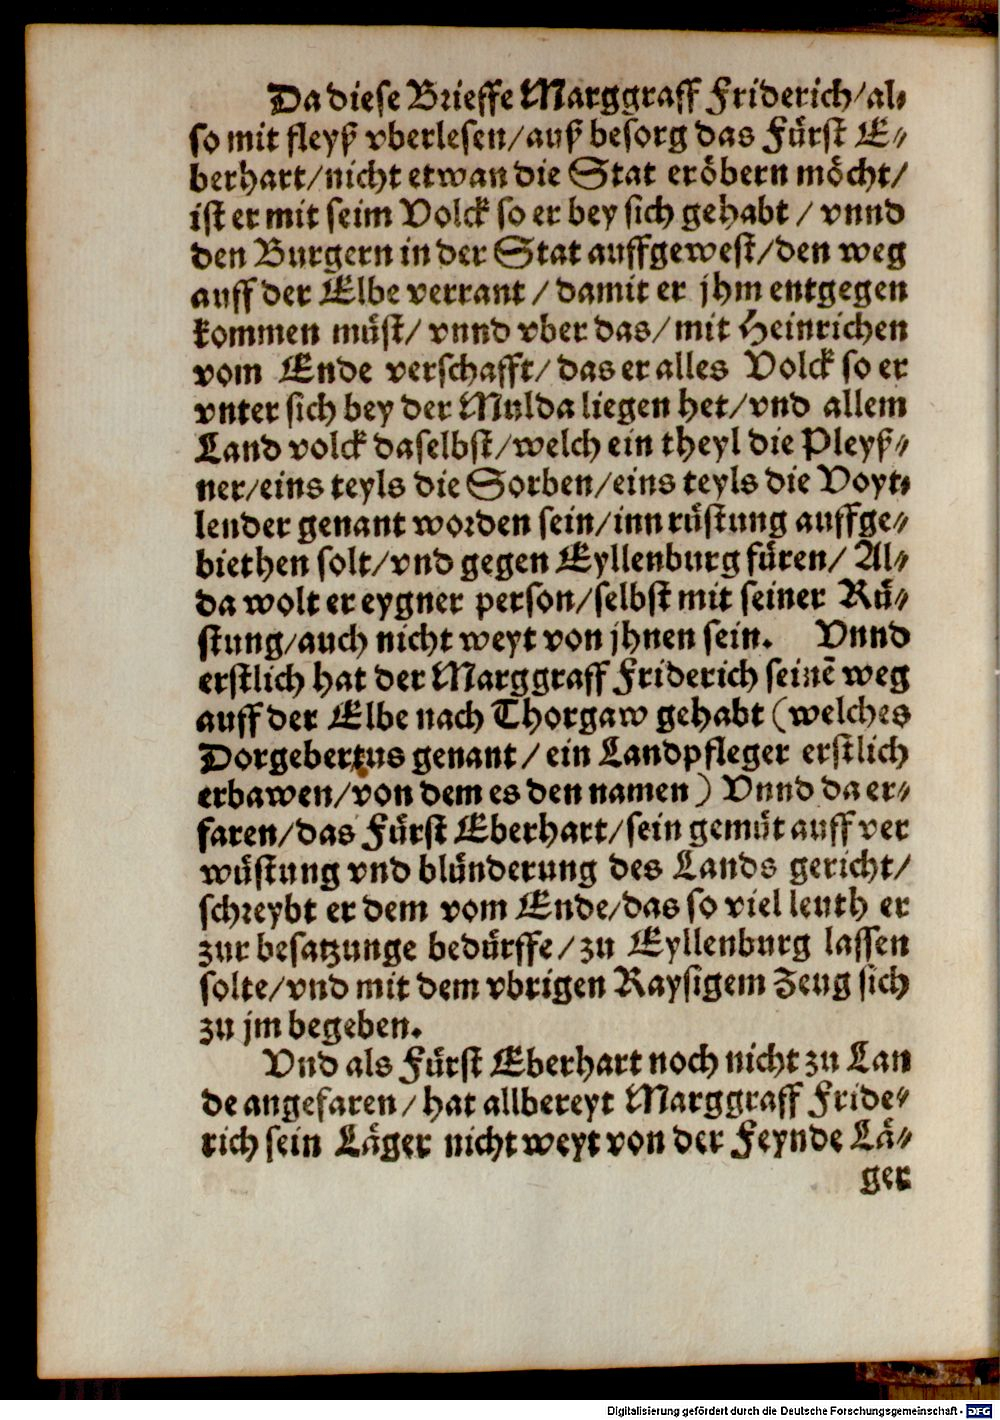 Da diese Brieffe Marggraff Friderich/al⸗
so mit fleyß vberlesen/auß besorg das Fürst E⸗
berhart/nicht etwan die Stat eröbern möcht/
ist er mit seim Volck so er bey sich gehabt / vnnd
den Burgern in der Stat auffgewest/den weg
auff der Elbe verrant / damit er jhm entgegen
kommen müst/ vnnd vber das/ mit Heinrichen
vom Ende verschafft/ das er alles Volck so er
vnter sich bey der Mulda liegen het/vnd allem
Land volck daselbst/welch ein theyl die Pleyß⸗
ner/eins teyls die Sorben/eins teyls die Voyt⸗
lender genant worden sein/inn rüstung auffge⸗
biethen solt/vnd gegen Eyllenburg füren/ Al⸗
da wolt er eygner person/selbst mit seiner Rü⸗
stung/auch nicht weyt von jhnen sein. Vnnd
erstlich hat der Marggraff Friderich seinē weg
auff der Elbe nach Thorgaw gehabt (welches
Dorgebertus genant / ein Landpfleger erstlich
erbawen/von dem es den namen) Vnnd da er⸗
faren/das Fürst Eberhart/sein gemüt auff ver
wüstung vnd blünderung des Lands gericht/
schreybt er dem vom Ende/das so viel leuth er
zur besatzunge bedürffe/zu Eyllenburg lassen
solte/vnd mit dem vbrigen Raysigem Zeug sich
zu jm begeben.
Vnd als Fürst Eberhart noch nicht zu Lan
de angefaren/ hat allbereyt Marggraff Fride⸗
rich sein Läger nicht weyt von der Feynde Lä⸗
ger
Digitalisierung gefördert durch die Deutsche Forschungsgemeinschaft - DFG